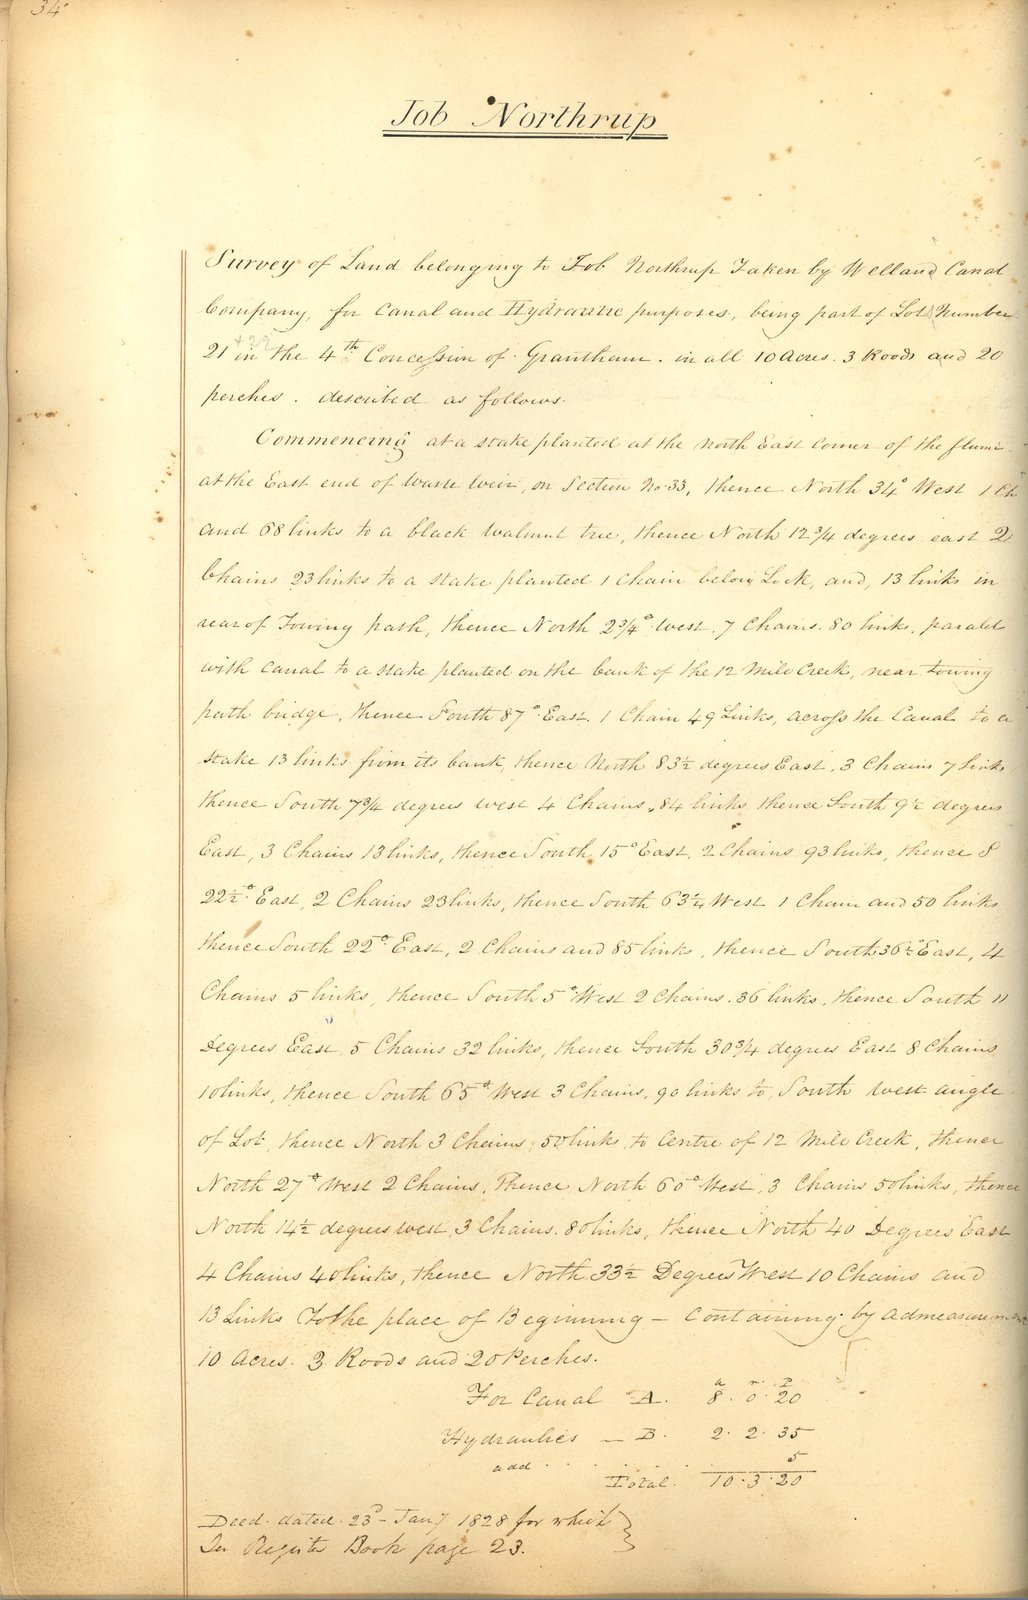 34
Job Northrup
Survey of Land belonging to Job Northrup Taken by Welland Canal
Company, for Canal and Hydraulic purposes, being part of Lot Number
+ 22
21 in the 4th Concession of Grantham. in all 10 Acres. 3 Roods and 20
perches. described as follows.
Commencing at a stake planted at the North East Corner of the flume
at the East end of Waste Weir, on Section No. 33, thence North 34° West 1 Ch
and 68 links to a black Walnut tree, thence North 12 3/4 degrees east 2
Chains 23 links to a stake planted 1 Chain below Lock, and, 13 links in
rear of Towing path, thence North 2 3/4° West. 7 Chains. 80 links. paralel
with Canal to a stake planted on the bank of the 12 Mile Creek, near towing
path bridge, thence South 87° East. 1 Chain 49 Links, across the Canal to a
stake 13 links from its bank, thence North 83 1/2 degrees East, 3 Chains 7 links,
thence South 7 3/4 degrees west 4 Chains, 84 links thence South 9 1/2 degrees
East, 3 Chains 13 links, thence South 15° East, 2 Chains 93 links, thence S
22 1/2° East, 2 Chains 23 links, thence South 63 1/4 West 1 Chain and 50 links
thence South 22° East, 2 Chains and 85 links, thence South 36 1/2° East, 4
Chains 5 links, thence South 5° West 2 Chains. 36 links, thence South 11
Degrees East, 5 Chains 32 links, thence South 30 3/4 degrees East 8 Chains
10 links, thence South 65° West 3 Chains, 90 links to South west angle
of Lot, thence North 3 Chains, 50 links to Centre of 12 Mile Creek, thence
North 27° West 2 Chains, Thence North 60° West, 3 Chains 50 links, thence
North 14 1/2 degrees west, 3 Chains. 80 links, thence North 40 Degrees East
4 Chains 40 links, thence North 33 1/2 Degrees West 10 Chains and
13 Links To the place of Beginning – Containing by admeasurement
10 Acres. 3 Roods and 20 Perches.
a r. P.
For Canal A. 8. 0. 20
Hydraulics – B. 2. 2. 35
add . . . . . . 5
Total. 10. 3. 20
Deed. dated. 23d Jany 1828 for which
See Register Book page 23.